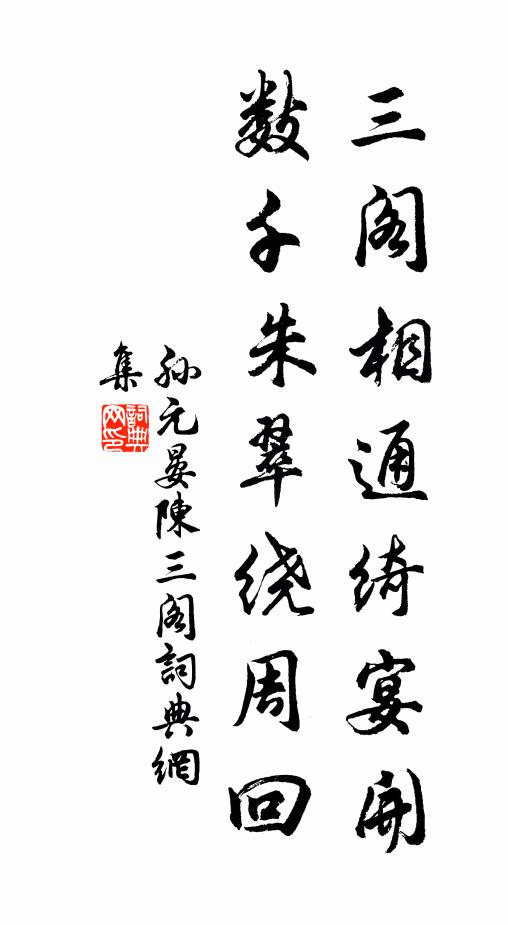 三阁相通绮宴開
数千朱翠绕周回
孙元晏陳三阁詞典網
集
詞典网印